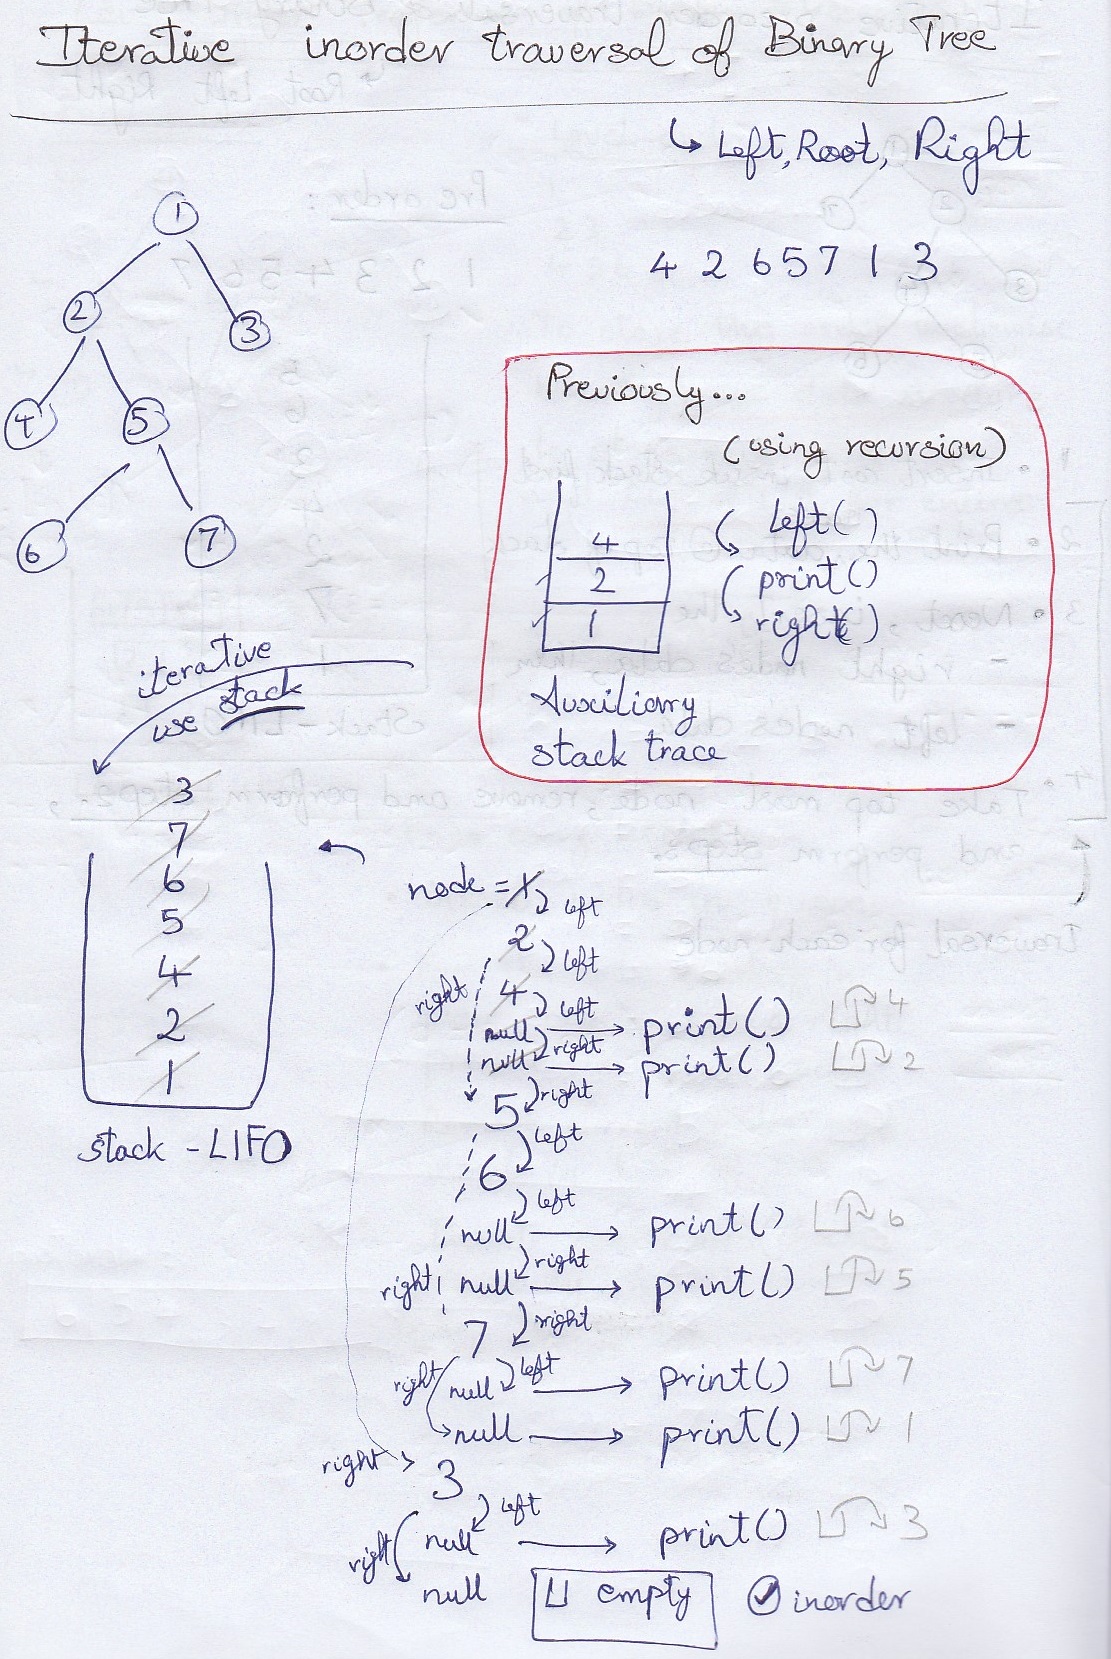 Iterative inorder traversal of Binary Tree
↳ Left, Root, Right
4 2 6 5 7 1 3
1
2
3
4
5
6
7
Previously...
(using recursion)
4
2
1
left()
print()
right()
Auxiliary
stack trace
iterative
use stack
3
7
6
5
4
2
1
stack - LIFO
node = 1 left
2 left
right 4 left
null print() 4
null right print() 2
right
5 left
6 left
null print() 6
right
right null print() 5
right
7 left
right null print() 7
null print() 1
right 3 left
right null print() 3
null
empty
inorder